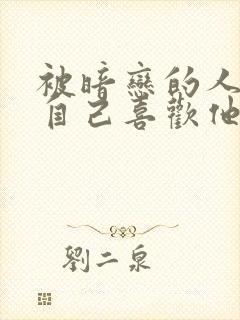 被暗戀的人
自己喜歡他
劉二泉